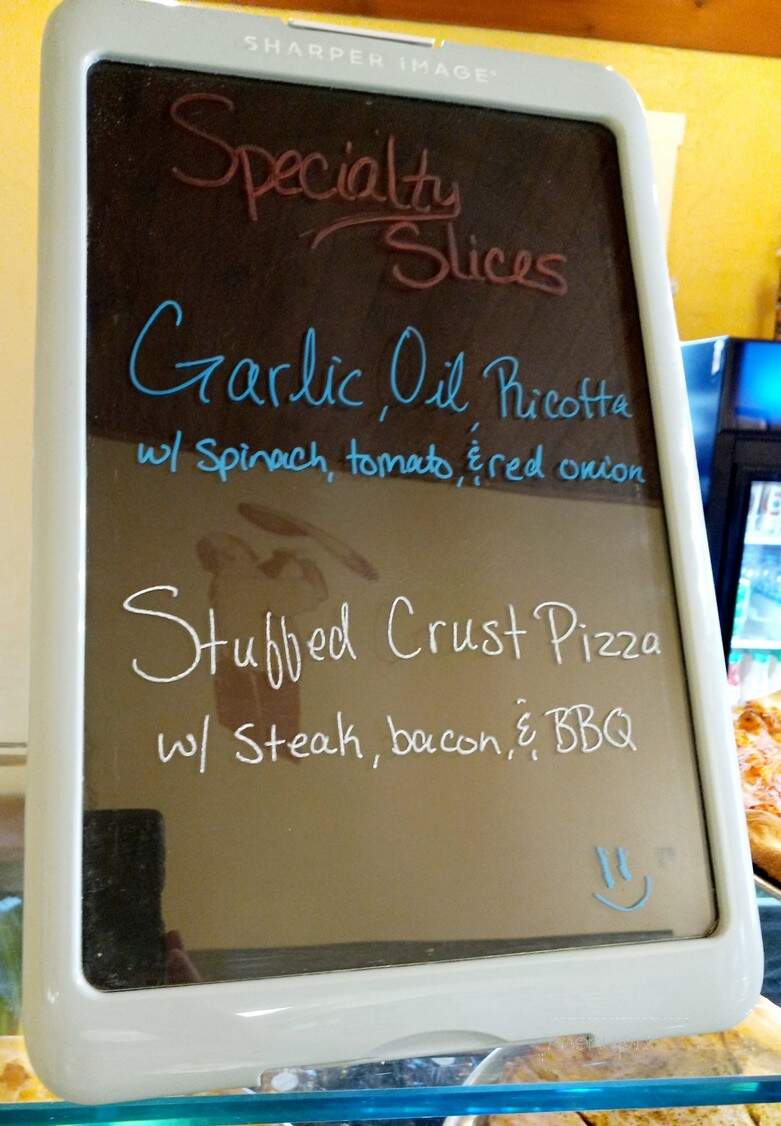 SHARPER IMAGE®
Specialty
Slices
Garlic, Oil, Ricotta
w/ Spinach, tomato, & red onion
Stuffed Crust Pizza
w/ Steak, bacon, & BBQ